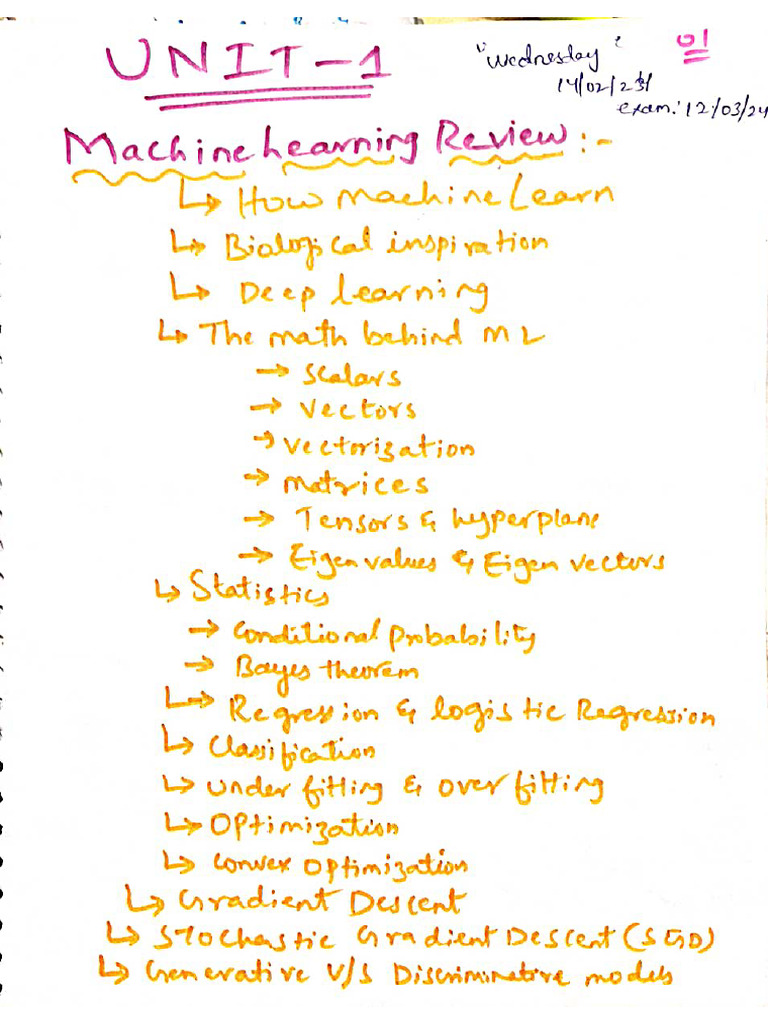 UNIT-1
"Wednesday"
01
14/02/2
exam: 12/03/24
Machine Learning Review :-
↳ How Machine Learn
↳ Biological inspiration
↳ Deep learning
↳ The math behind ML
→ Scalars
→ Vectors
→ Vectorization
→ Matrices
→ Tensors & hyperplane
→ Eigen values & Eigen vectors
↳ Statistics
→ Conditional probability
→ Bayes theorem
↳ Regression & logistic Regression
↳ Classification
↳ Under fitting & over fitting
↳ Optimization
↳ Convex optimization
↳ Gradient Descent
↳ Stochastic Gradient Descent (SGD)
↳ Generative V/S Discriminative models